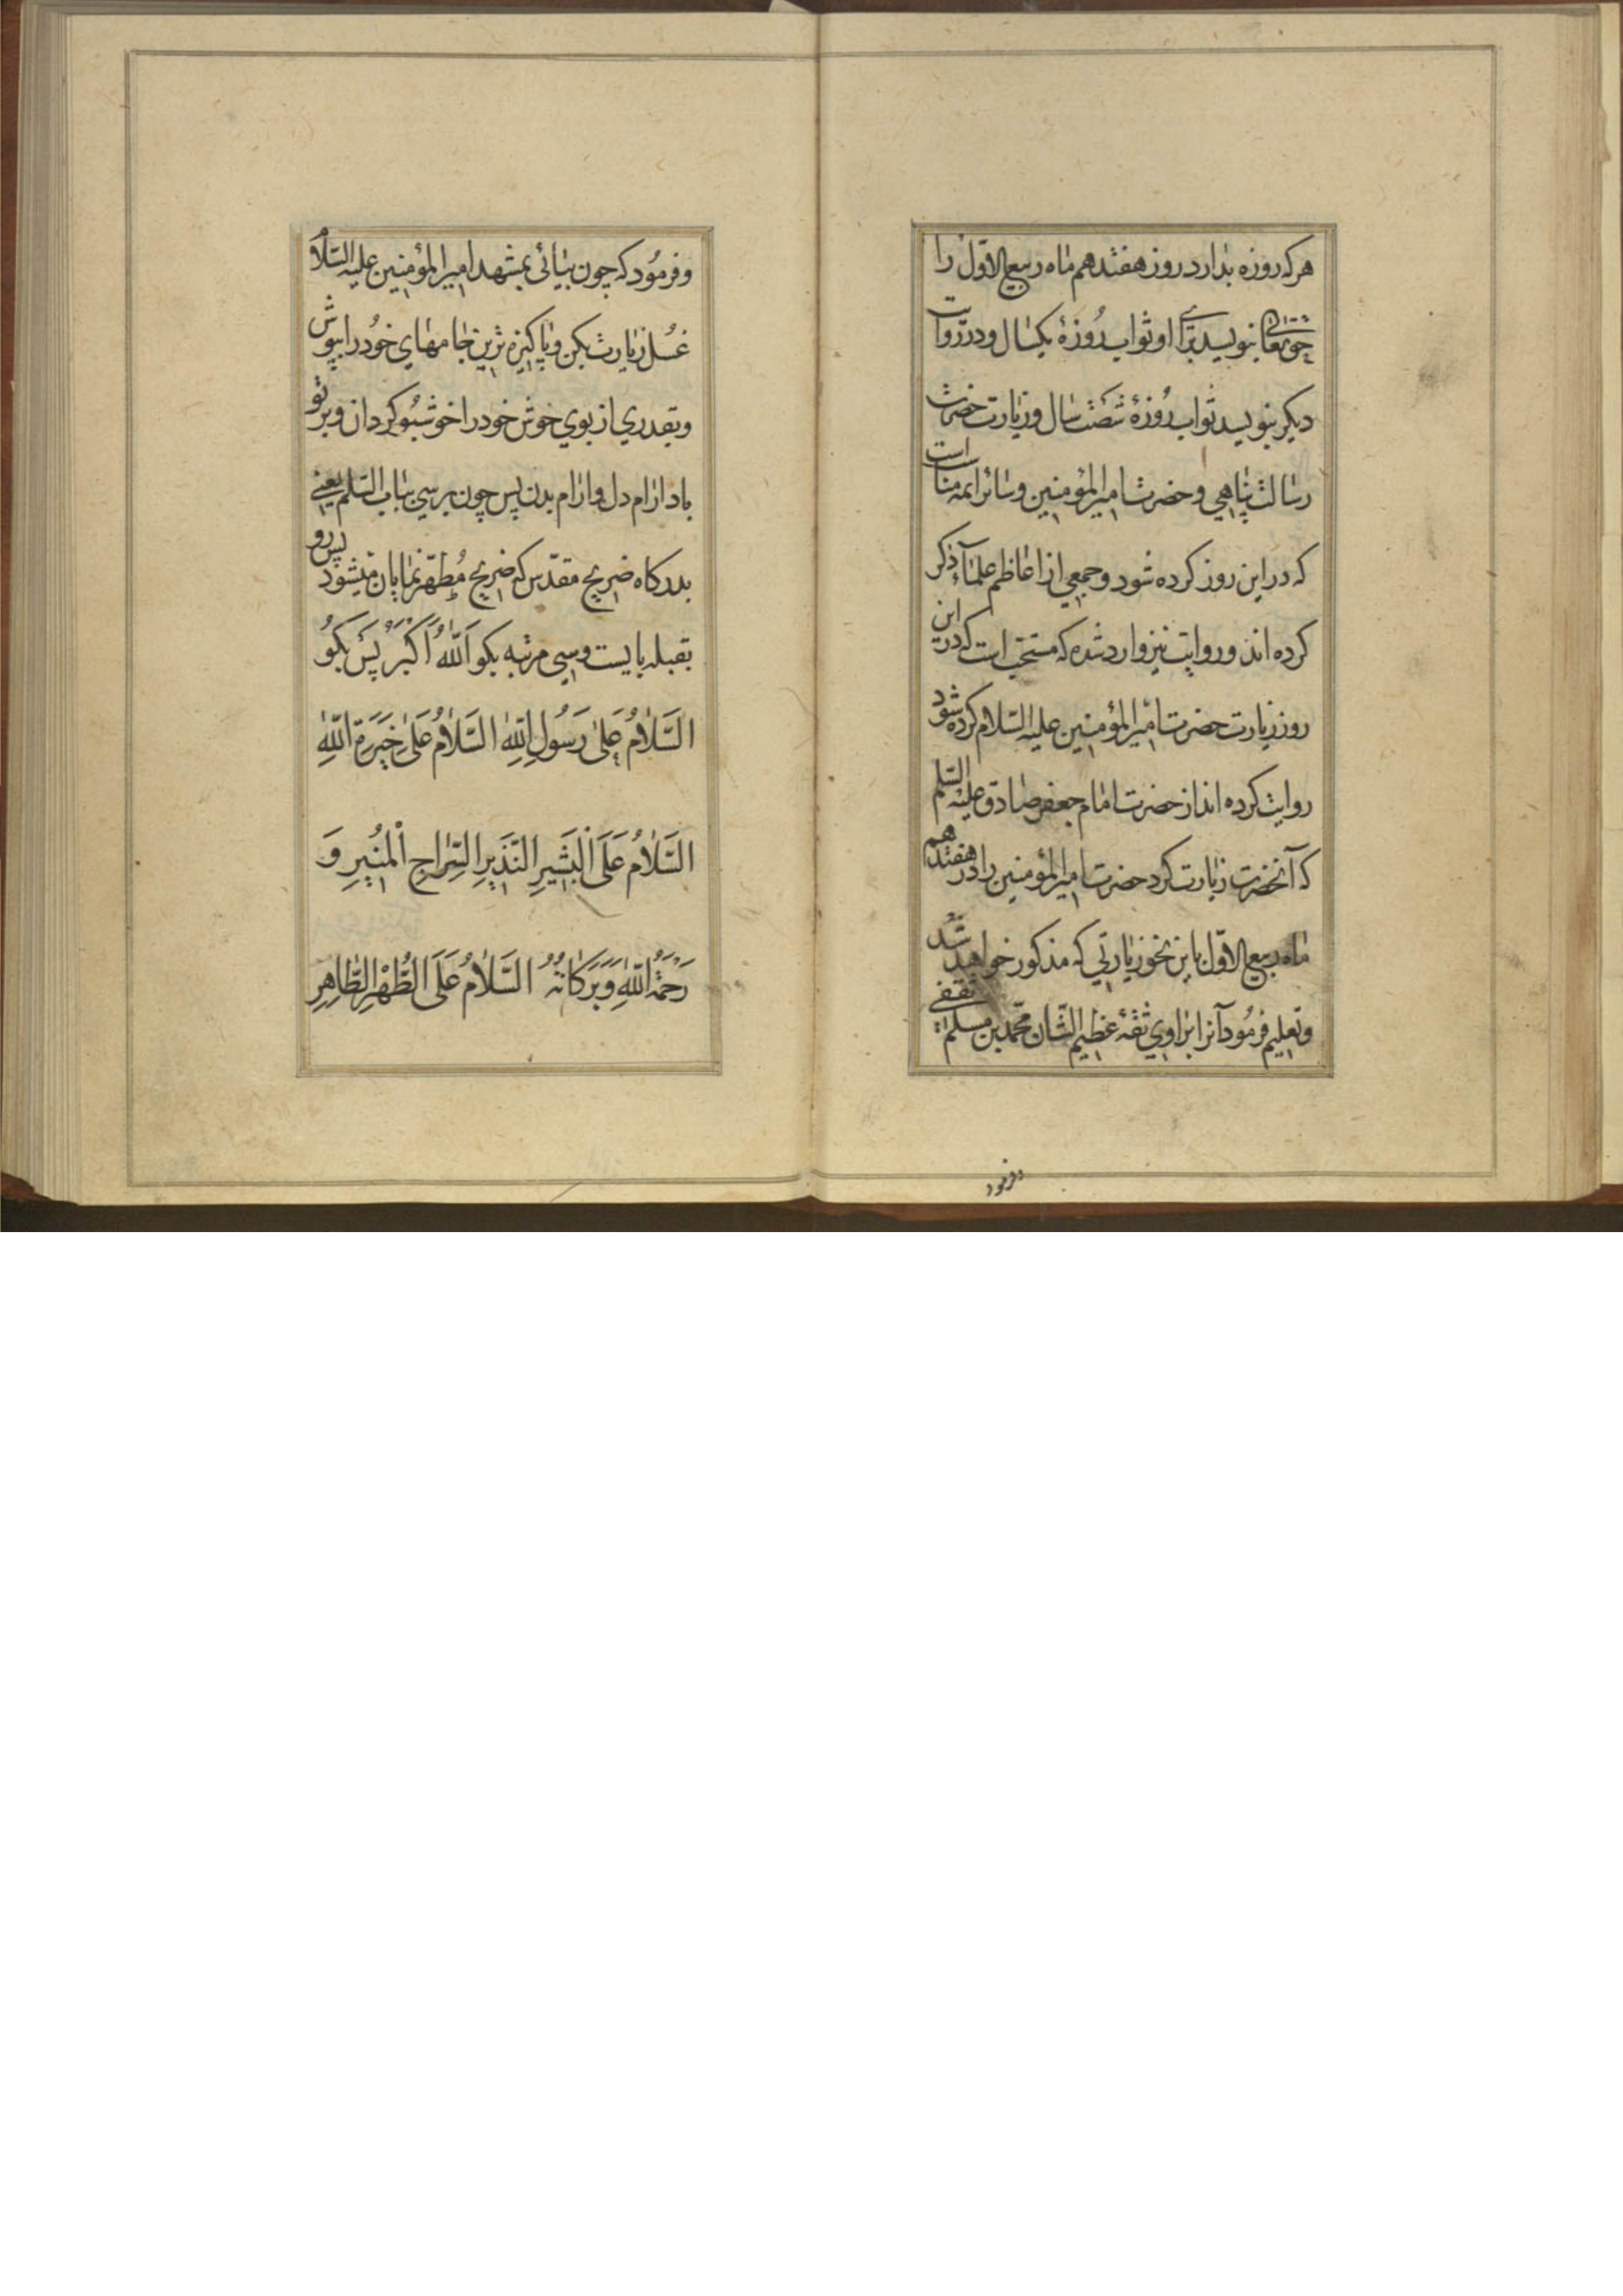 هرکه روزه بدارد روز هفتدهم ماه ربیع الاوّل را
حقتعالی بنویسد برای او ثواب روزهٔ یکسال و در روایت
دیکر بنویسد ثواب روزهٔ شصت سال و زیارت حضرت
رسالت پناهی و حضرت امیر المؤمنین و سائر ائمه مناسب است
که در این روز کرده شود و جمعی از اعاظم علمآء ذکر
کرده اند و روایت نیز وارد شده که مستحب است که در این
روز زیارت حضرت امیر المؤمنین علیه السّلام کرده شود
روایت کرده اند از حضرت امام جعفر صادق علیه السّلم
که آنحضرت زیارت کرد حضرت امیر المؤمنین را در هفتدهم
ماه ربیع الاوّل باین نحو زیارتی که مذکور خواهد شد
و تعلیم فرمود آنرا براوی ثقهٔ عظیم الشّان محمّد بن مسلم ثقفی
وفرمود
و فرمود که چون بیائی بمشهد امیر المؤمنین علیه السّلام
غسل زیارت بکن و پاکیزه ترین جامهای خود را بپوش
و بقدری از بوی خوش خود را خوشبو کردان و بر تو
باد ارام دل و ارام بدن پس چون برسی بباب السّلم یعنی
بدرکاه ضریح مقدّس که ضریح مُطهّر نمایان میشود پس رو
بقبله بایست و سی مرتبه بکو اَللّٰهُ اَکْبَرُ پس بکو
السَّلٰامُ عَلیٰ رَسُولِ اللّٰهِ السَّلٰامُ عَلیٰ خِیَرَةِ اللّٰهِ
السَّلٰامُ عَلَی الْبَشیرِ النَّذیرِ السِّرٰاجِ الْمُنیرِ وَ
رَحْمَةُ اللّٰهِ وَبَرَکٰاتُهُ السَّلٰامُ عَلَی الطُّهْرِ الطّٰاهِرِ